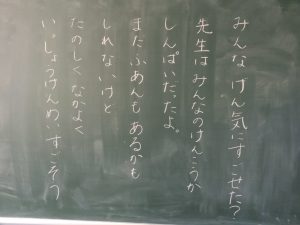 みんな げん気にすごせた?
先生は みんなのけんこうが
しんぱいだったよ。
まだふあんも あるかも
しれないけど
たのしく なかよく
いっしょうけんめいすごそう